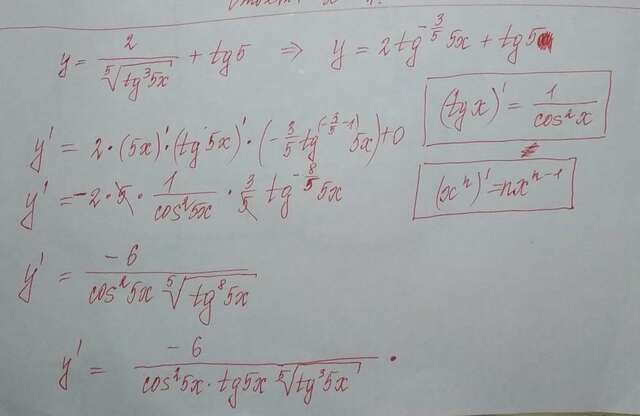 y = 2/⁵√(tg³5x) + tg5 ⇒ y = 2tg^(-3/5) 5x + tg5
(tg x)' = 1/cos²x
y' = 2·(5x)'·(tg 5x)'·(-3/5 tg^(-3/5-1) 5x)+0
(xⁿ)' = nxⁿ⁻¹
y' = -2·5·1/cos²5x · 3/5 tg^(-8/5) 5x
y' = -6/(cos²5x ⁵√(tg⁸5x))
y' = -6/(cos²5x · tg5x ⁵√(tg³5x)).